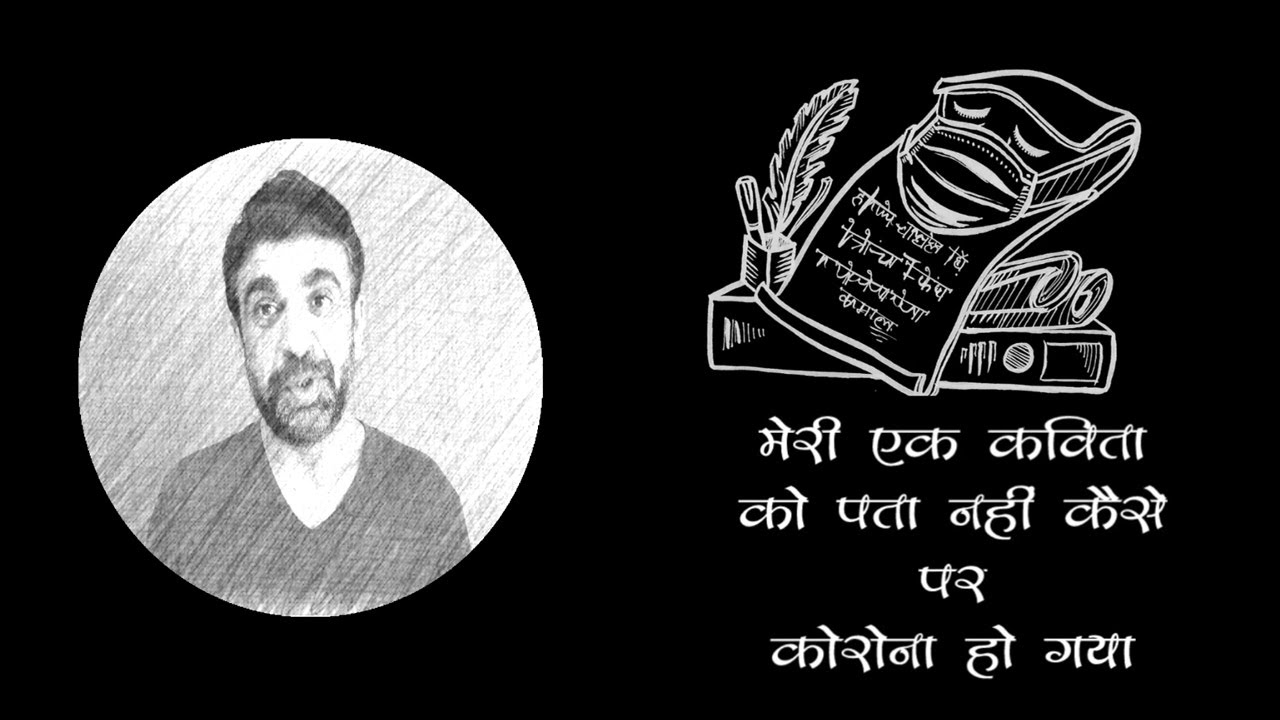 मेरी एक कविता
को पता नहीं कैसे
पर
कोरोना हो गया